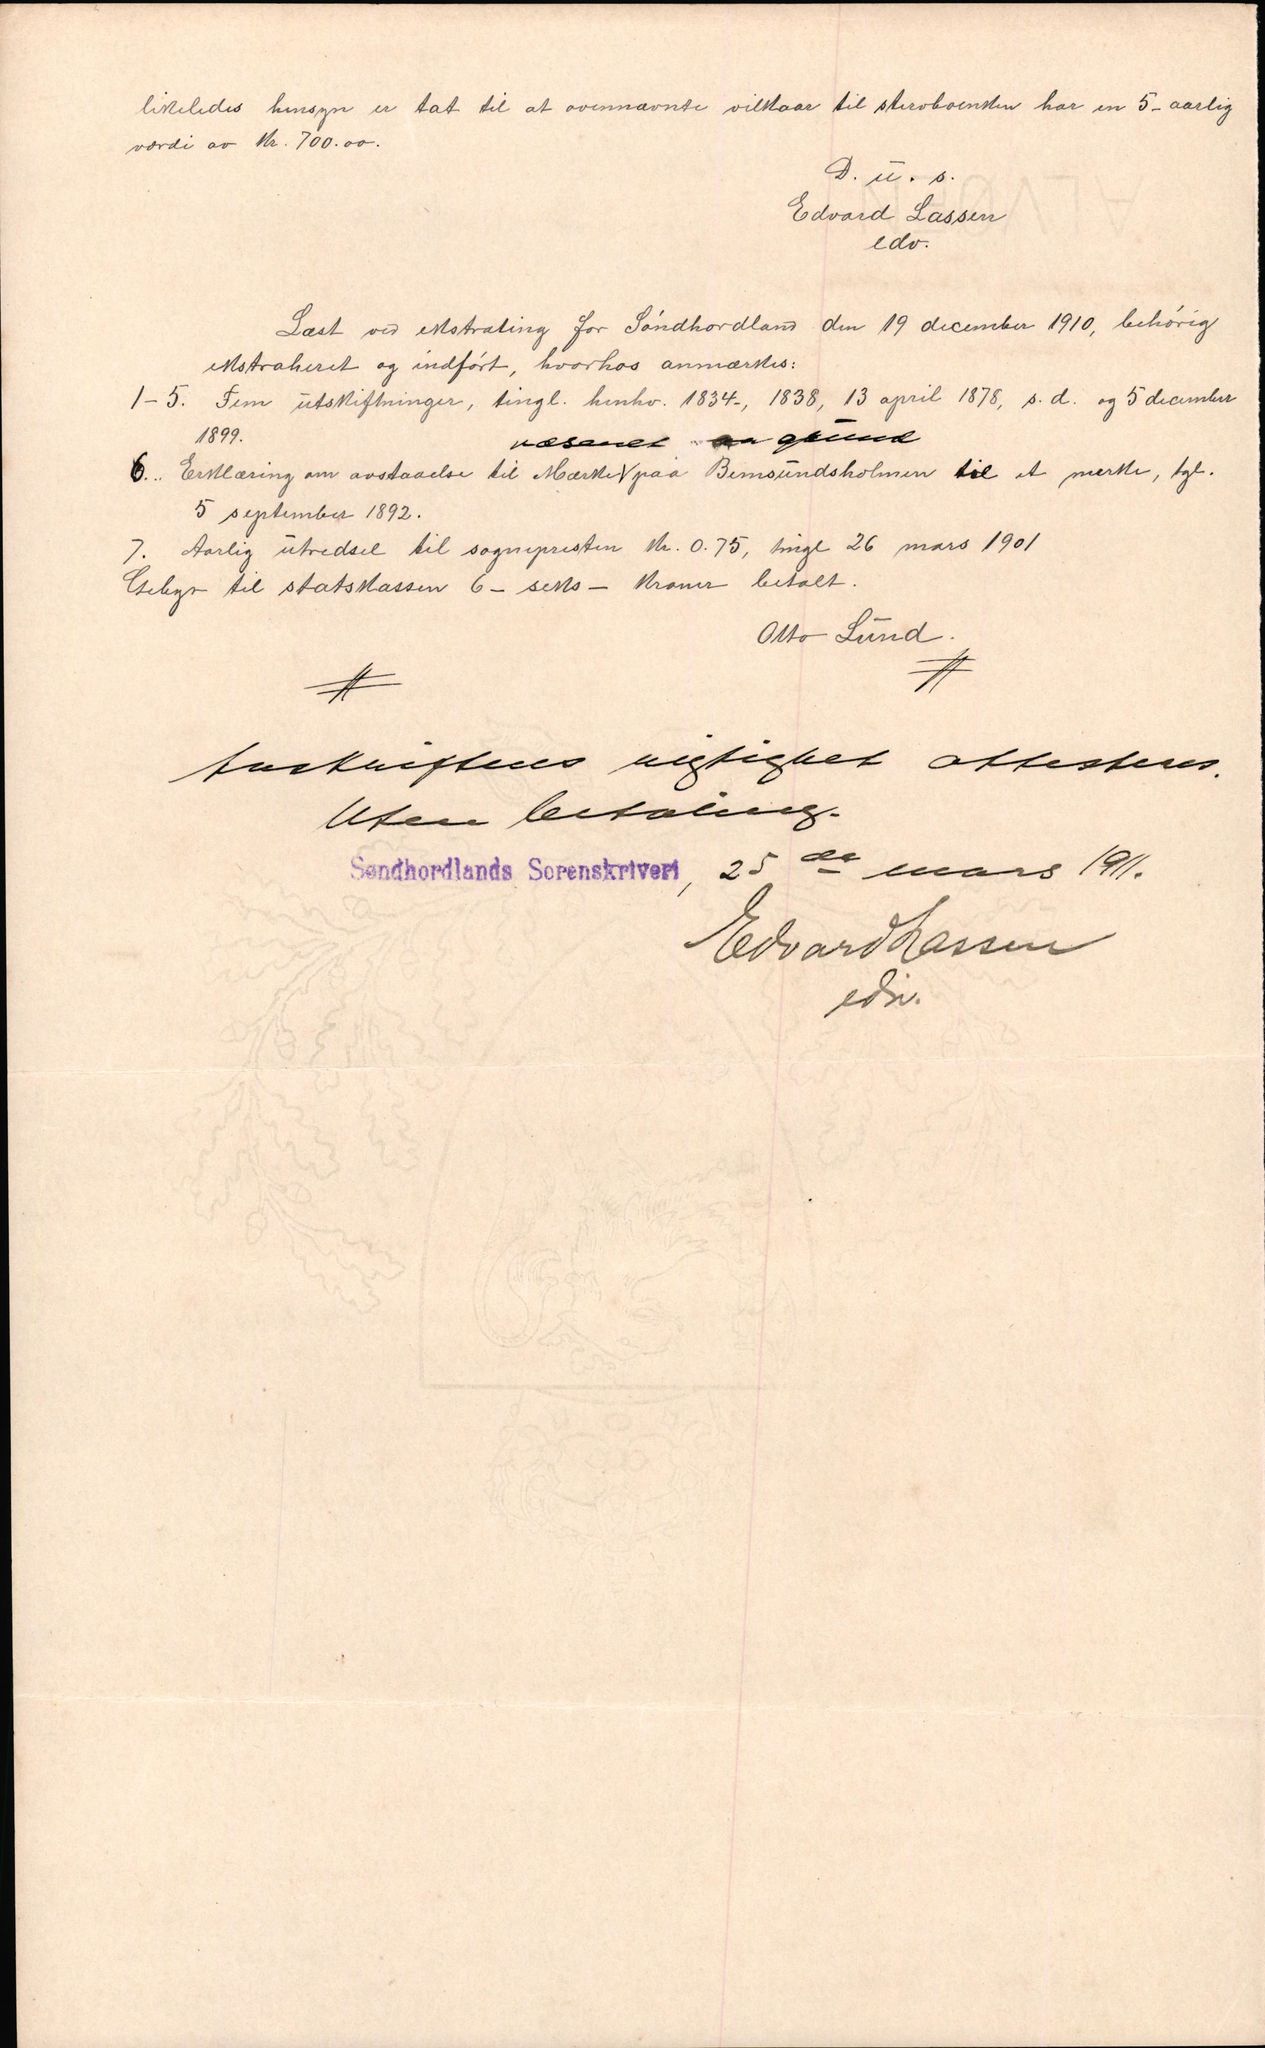 likeledes hensyn er tat til at ovennævnte vilkaar til stervboenken har en 5-aarlig
værdi av Kr. 700.oo.
D. u. s.
Edvard Lassen
edv.
Læst ved ekstrating for Söndhordland den 19 december 1910, behörig
ekstraheret og indfört, hvorhos anmærkes:
1-5. Fem utskiftninger, tingl. henhv. 1834-, 1838, 13 april 1878, s. d. og 5 december
1899.
væsenet av grund
6.. Erklæring om avstaaelse til Mærke V paa Bemsundsholmen til et merke, tgl.
5 september 1892.
7. Aarlig utredsel til sognepresten Kr. 0.75, tingl 26 mars 1901
Gebyr til statskassen 6 - seks - kroner betalt.
Otto Lund.
Avskriftens rigtighet attesteres.
Uten betaling.
Søndhordlands Sorenskriveri, 25 de mars 1911.
Edvard Lassen
edv.